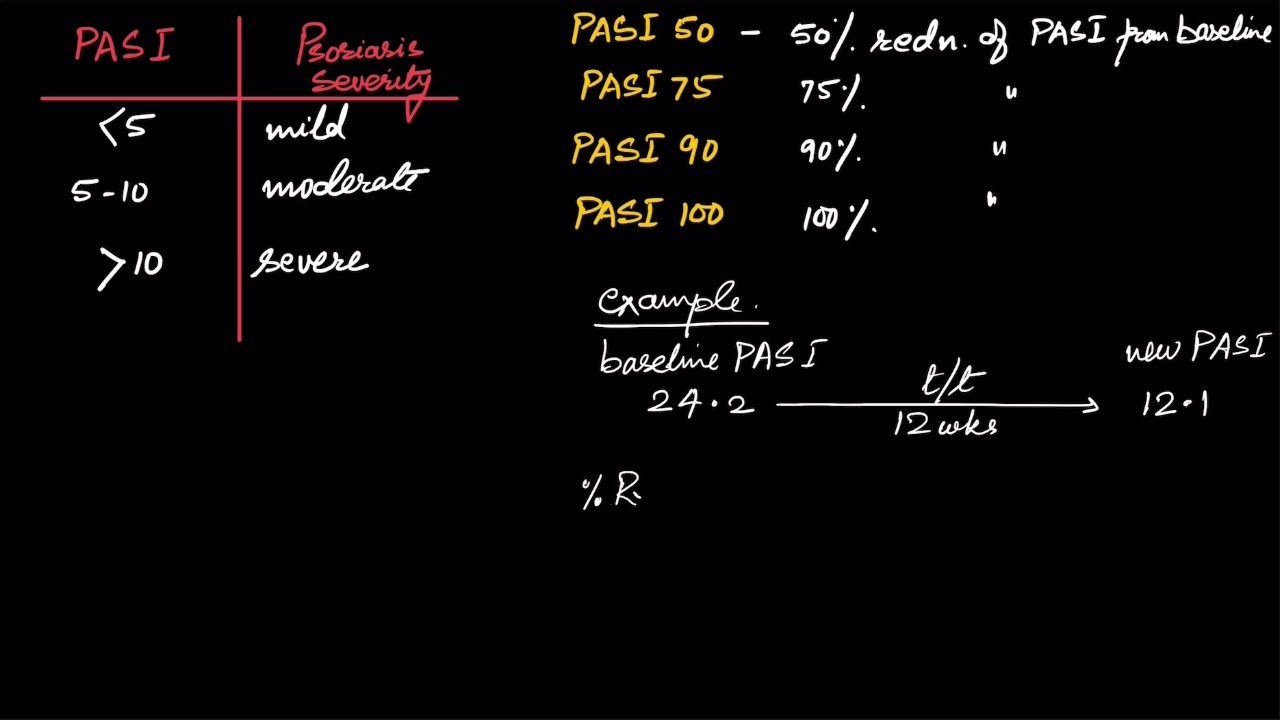 PASI Psoriasis severity
<5 mild
5-10 moderate
>10 severe
PASI 50 - 50% redn. of PASI from baseline
PASI 75 75% "
PASI 90 90% "
PASI 100 100% "
example.
baseline PASI t/t new PASI
24.2 12 wks 12.1
% R